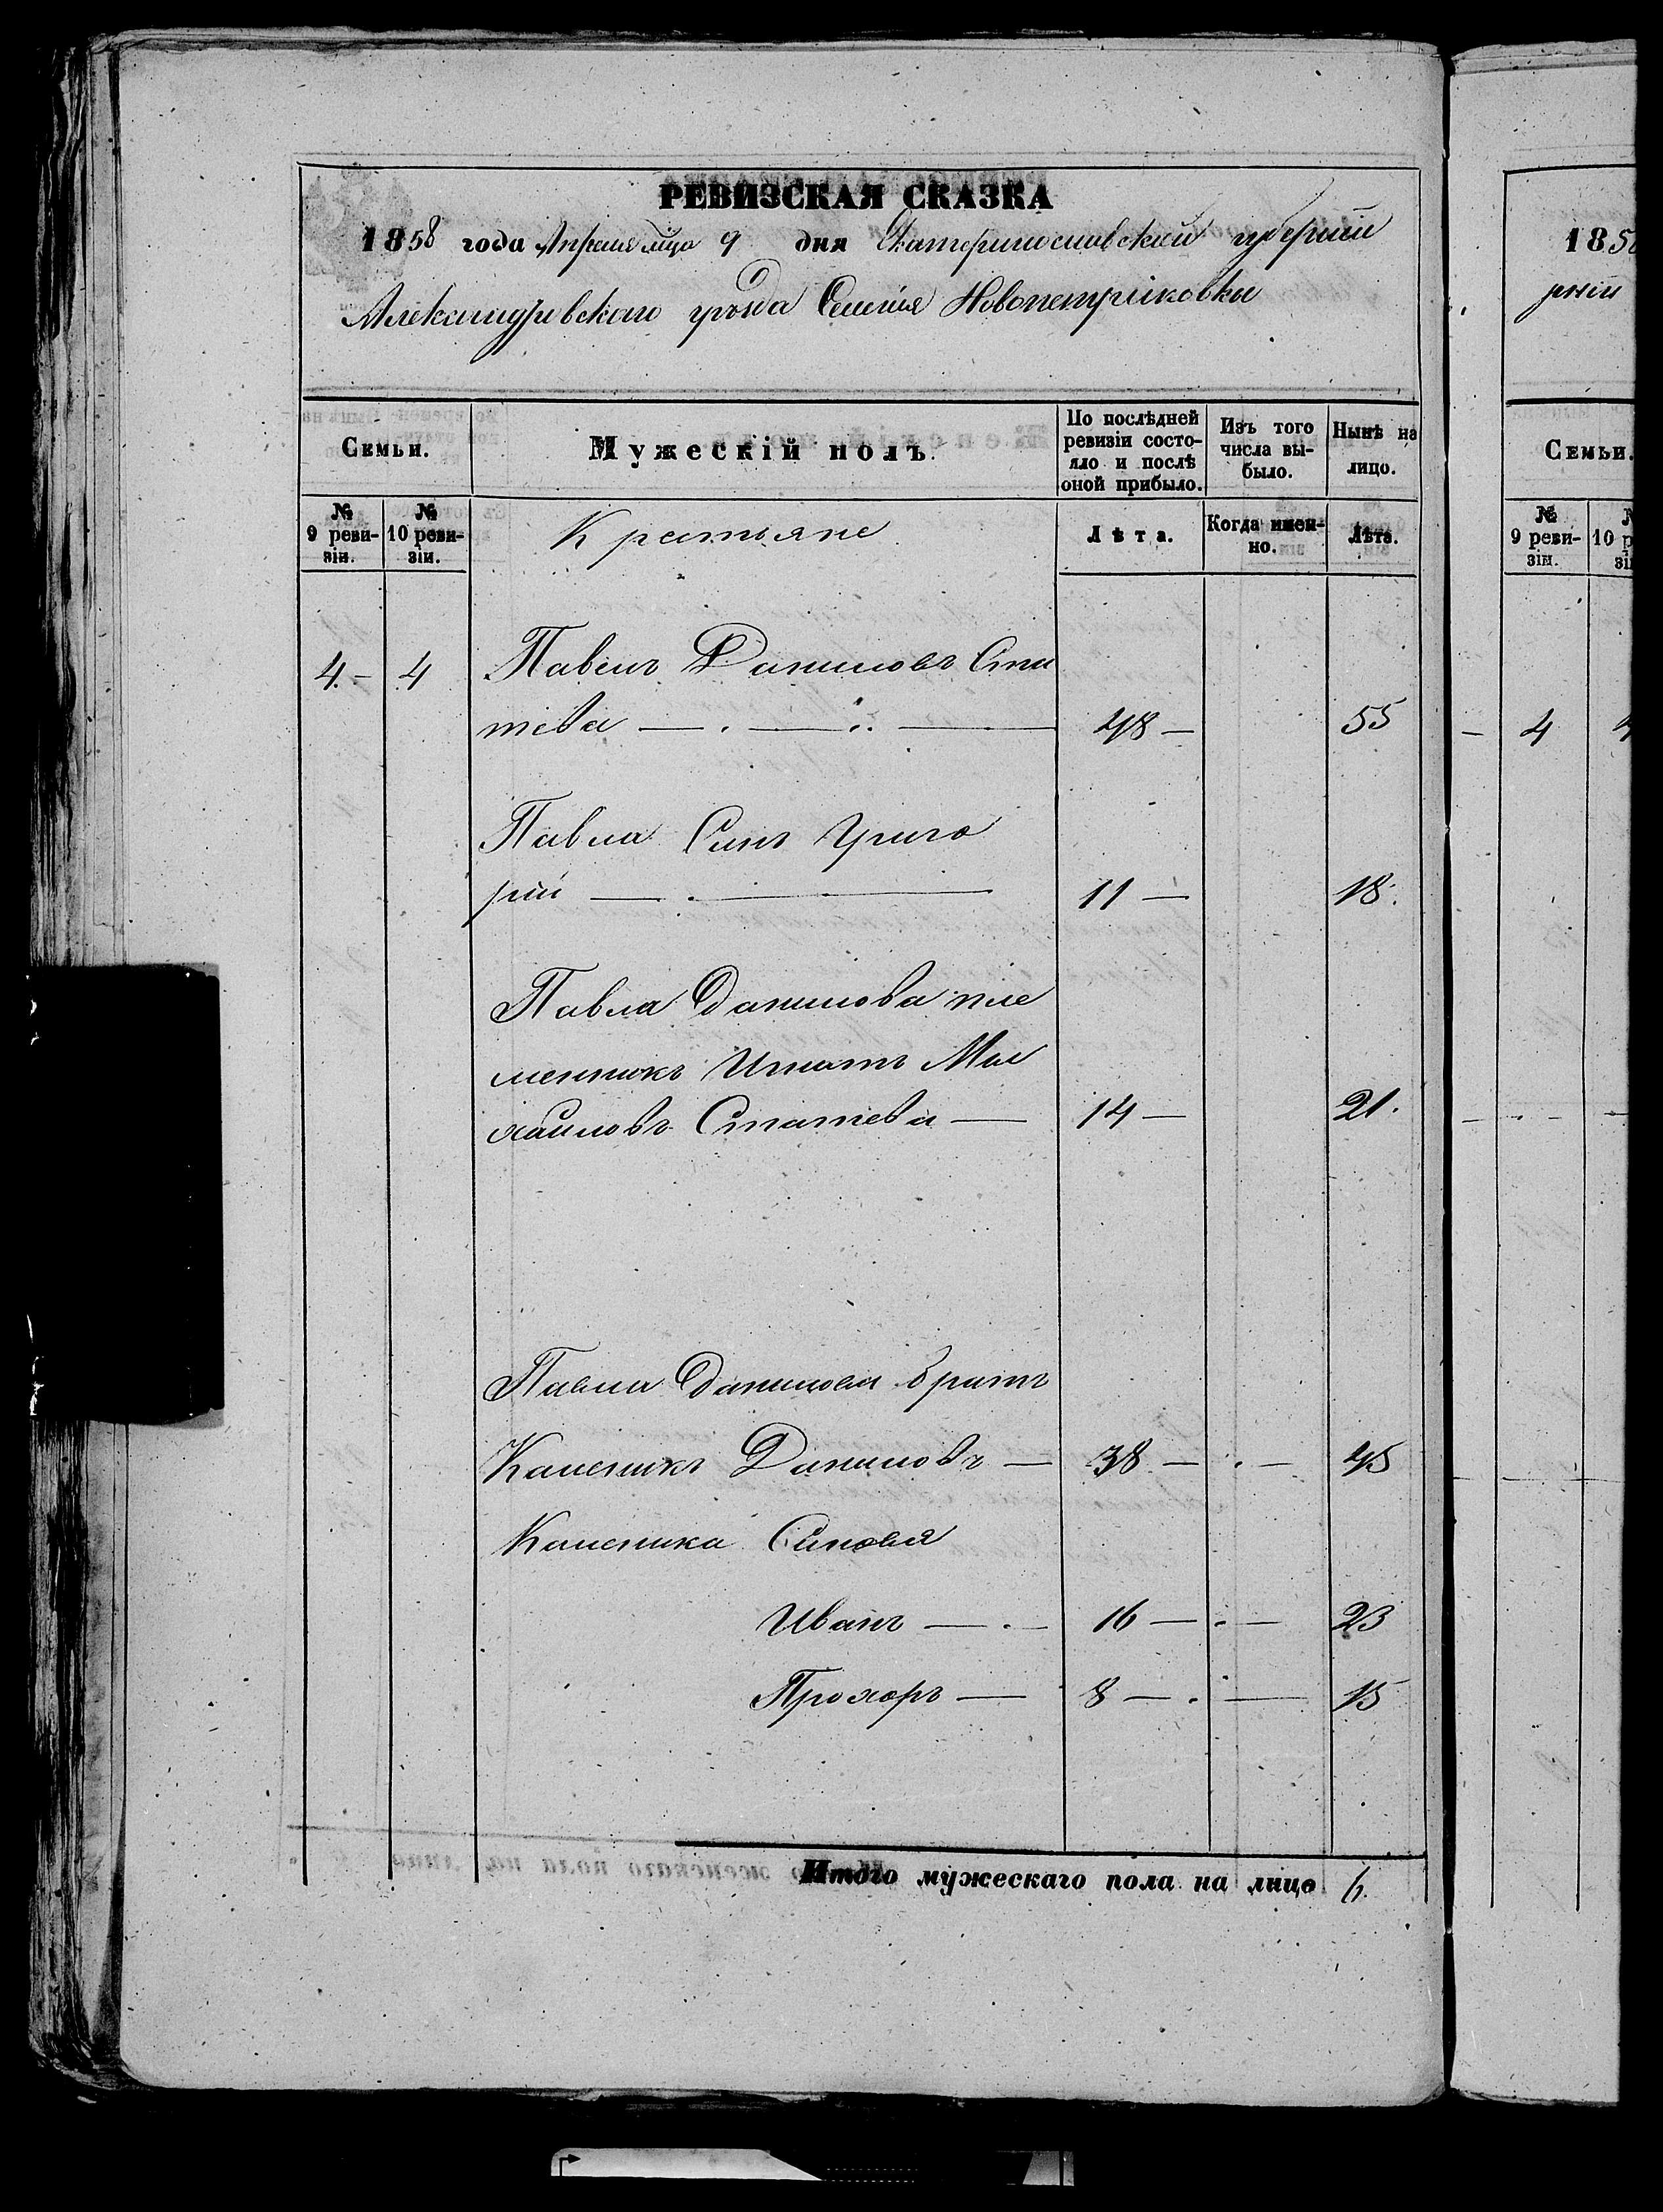 РЕВИЗСКАЯ СКАЗКА
1858 года Апреля мца 9 дня Екатеринославской губернии
Александровскаго уезда Селенія Новопетриковки
Семьи.
Мужескій полъ.
По послѣдней ревизіи состояло и послѣ оной прибыло.
Изъ того числа выбыло.
Нынѣ на лицо.
№ 9 ревизіи.
№ 10 ревизіи.
Крестьяне
Лѣта.
Когда именно.
Лѣта.
4 - 4 Павелъ Даниловъ Ста
тева — 48 — 55
Павла Синъ Григо
рій — 11 — 18.
Павла Данилова пле
менникъ Игнатъ Ми
хайловъ Статева — 14 — 21.
Павла Данилова братъ
Каленикъ Даниловъ — 38 — 45
Каленика Синовя
Иванъ — 16 — 23
Прохоръ — 8 — 15
Итого мужескаго пола на лицо 6.
185
рніи
Семьи.
№ 9 ревизіи.
4